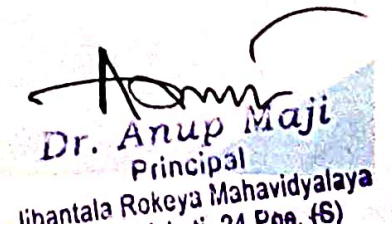 Dr. Anup Maji
Principal
Jibantala Rokeya Mahavidyalaya
24 Pgs. (S)